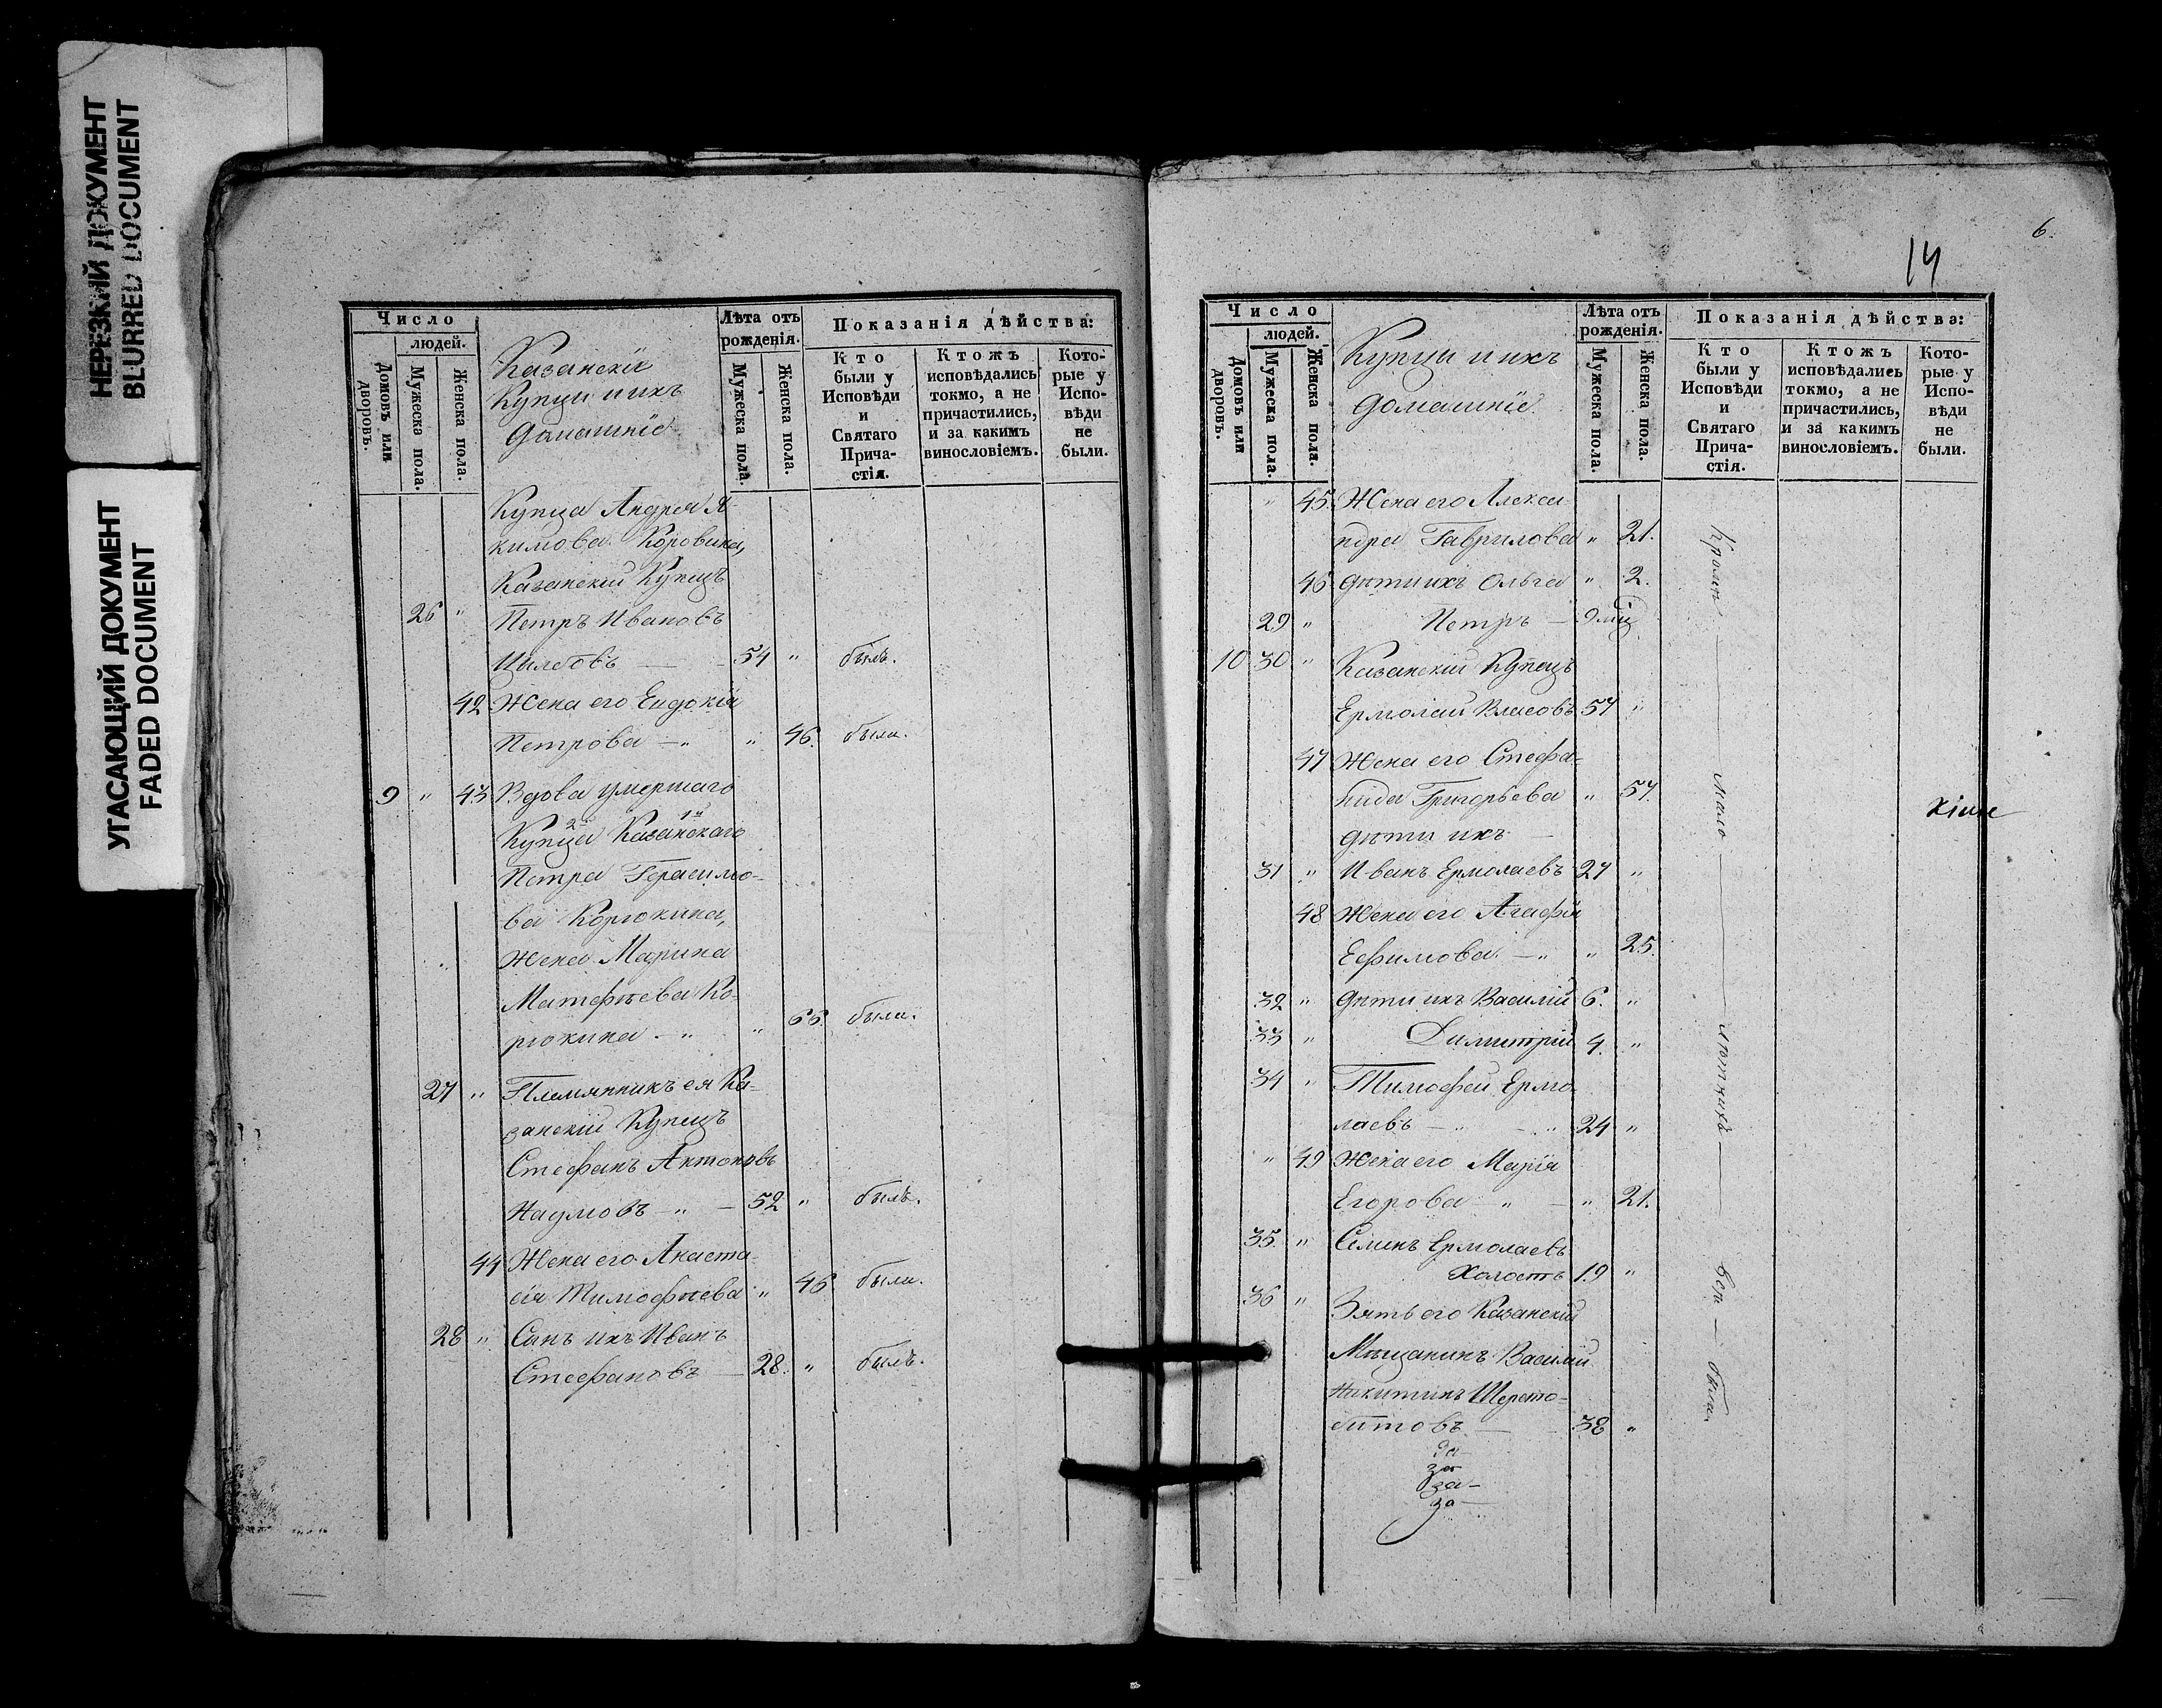 НЕРЕЗКИЙ ДОКУМЕНТ
BLURRED DOCUMENT
УГАСАЮЩИЙ ДОКУМЕНТ
FADED DOCUMENT
Число
людей.
Домовъ или дворовъ.
Мужеска пола.
Женска пола.
Казанскіе
Купцы и ихъ
домашніе
Лѣта отъ
рожденія.
Мужеска пола.
Женска пола.
Показанія дѣйства:
Кто
были у
Исповѣди
и
Святаго
Прича-
стія.
Ктожъ
исповѣдались
токмо, а не
причастились,
и за какимъ
винословіемъ.
Кото-
рые у
Испо-
вѣди
не
были.
Купца Андрея Я-
кимова Коровина,
Казанскій Купецъ
26 " Петръ Ивановъ
54 " былъ.
42 Жена его Евдокія
Петрова — " " 46. была.
9 " 43 Вдова умершаго
2й 1й
Купца Казанскаго
Петра Герасимо-
ва Корюкина,
жена Марина
Матфѣева Ко-
рюкина — " " 66 была.
27 " Племянникъ ея Ка-
занскій Купецъ
Стефанъ Антоновъ
Наумовъ — " — 52 " былъ.
44 Жена его Анаста-
сія Тимофѣева " 46 была.
28 " Сынъ ихъ Иванъ
Стефановъ — 28. " былъ.
6.
14
Число
людей.
Домовъ или дворовъ.
Мужеска пола.
Женска пола.
Купцы и ихъ
домашніе
Лѣта отъ
рожденія.
Мужеска пола.
Женска пола.
Показанія дѣйства:
Кто
были у
Исповѣди
и
Святаго
Прича-
стія.
Ктожъ
исповѣдались
токмо, а не
причастились,
и за какимъ
винословіемъ.
Кото-
рые у
Испо-
вѣди
не
были.
" 45. Жена его Алекса-
ндра Гаврилова " 21.
46 дѣти ихъ Ольга " 2.
29 " Петръ — 9 мц
10 30 " Казанскій Купецъ
Ермолай Власовъ 57 "
47 Жена его Стефа-
нида Григорьева " 57.
дѣти ихъ —
31 " Иванъ Ермолаевъ 27 "
48 Жена его Агафія
Ефимова — " " 25.
32 " дѣти ихъ Василій 6. "
33 " Димитрій 4. "
34 " Тимофей Ермо-
лаевъ — " 24 "
" 49 Жена его Марія
Егорова — " — " 21.
35 " Семенъ Ермолаевъ
Холостъ 19 "
36 " Зять его Казанскій
Мѣщанинъ Василій
Никитинъ Шерсто-
битовъ — 38 "
Кромѣ — мало — лѣтнихъ — всѣ — были.
за
за
за